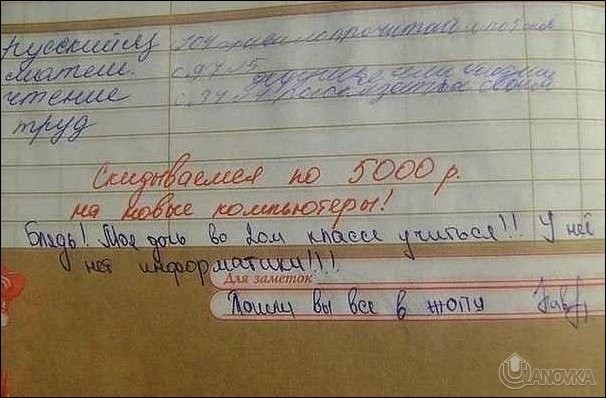 Русский яз 104 правило прочитать
матем. с. 97 №5
чтение с. 34
труд
Скидываемся по 5000 р.
на новые компьютеры!
Блядь! Моя дочь во 2ом классе учиться!!! У неё
нет информатики!!!!
Для заметок
Пошли вы все в жопу
UANOVKA